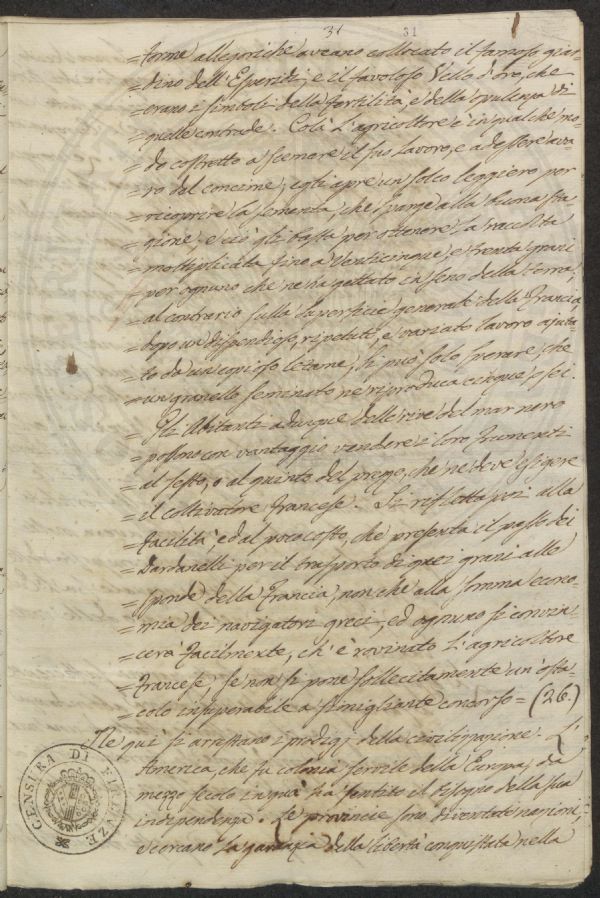 31 31
=forme allegoriche aveano collocato il famoso giar=
=dino dell'Esperidi, e il favoloso Vello d'oro, che
=erano i simboli della fertilità, e della opulenza di
=quelle contrade. Colà l'agricoltore è in qualche mo=
=do costretto a scemare il suo lavoro, e ad essere ava=
=ro del concime; egli apre un solco leggiero per
=ricoprire la sementa, che sparge alla buona sta=
=gione, e ciò gli basta per ottenere la raccolta
=moltiplicata fino a venticinque, e trenta grani
=per ognuno che ne ha gettato in seno della terra;
=al contrario sulla superficie generale della Francia,
=dopo un dispendioso, ripetuto, e variato lavoro ajuta=
=to da un copioso letame, si può solo sperare, che
=un granello seminato ne riproduca cinque o sei.
=Gli Abitanti adunque delle rive del mar nero
=possono con vantaggio vendere i loro Frumenti
=al sesto, o al quinto del prezzo, che ne deve esigere
=il coltivatore Francese. Si rifletta poi alla
=facilità ed al poco costo, che presenta il passo dei
=Dardanelli per il trasporto di quei grani alle
=sponde della Francia, non che alla somma econo=
=mia dei navigatori greci, ed ognuno si convin=
=cerà facilmente, ch'è rovinato l'agricoltore
=Francese, se non si pone sollecitamente un'osta=
=colo insuperabile a simigliante concorso= (26.)
Ne qui si arrestano i prodigj della civilizzazione. L'
America, che fu colonia servile della Europa, da
mezzo secolo in quà ha sentito il bisogno della sua
independenza. Le provincie sono diventate nazioni,
e cercano la garanzia della libertà conquistata nella
CENSURA DI FIRENZE